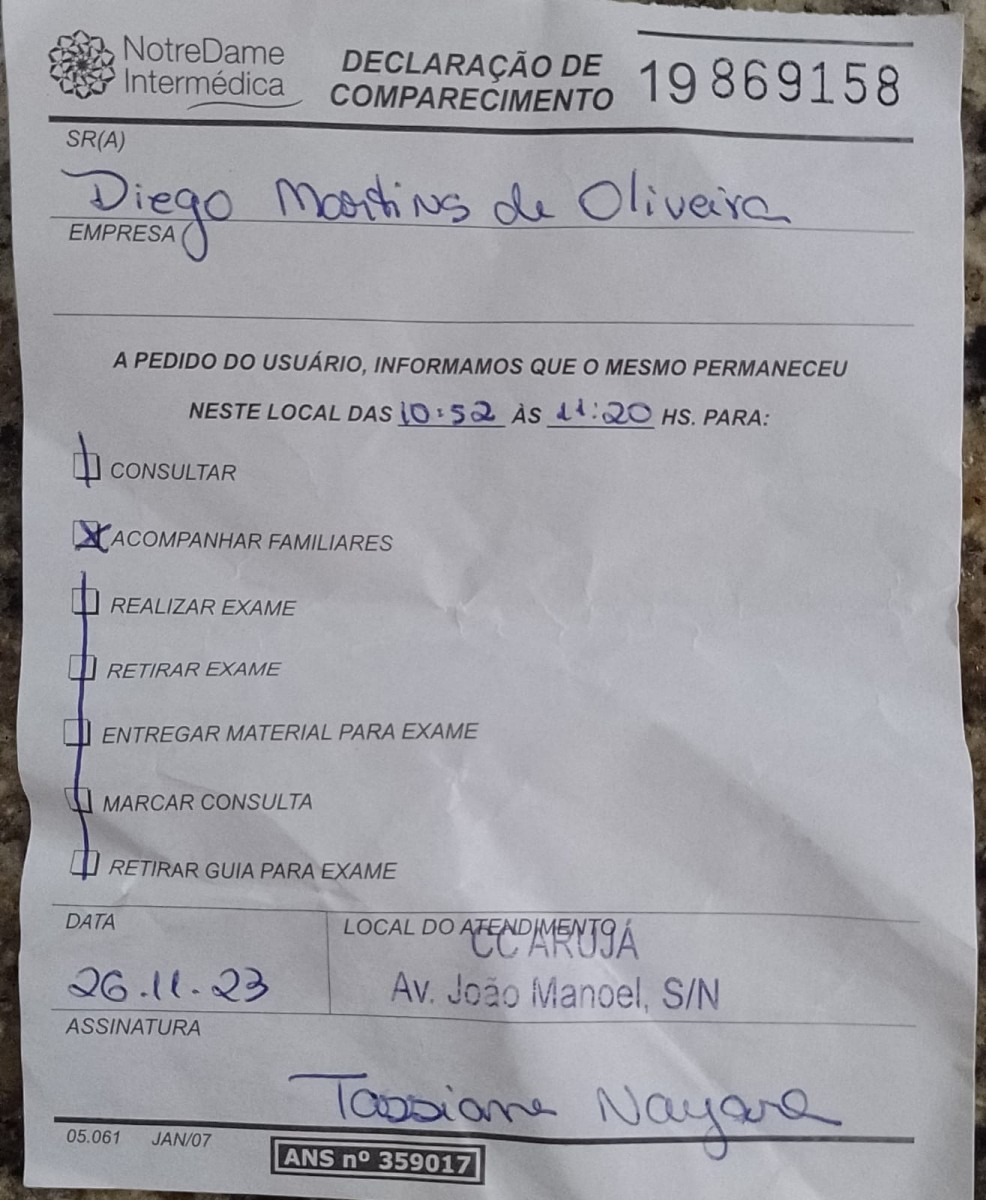 NotreDame
Intermédica
DECLARAÇÃO DE
COMPARECIMENTO
19 869158
SR(A)
Diego Martins de Oliveira
EMPRESA
A PEDIDO DO USUÁRIO, INFORMAMOS QUE O MESMO PERMANECEU
NESTE LOCAL DAS 10:52 ÀS 11:20 HS. PARA:
CONSULTAR
ACOMPANHAR FAMILIARES
REALIZAR EXAME
RETIRAR EXAME
ENTREGAR MATERIAL PARA EXAME
MARCAR CONSULTA
RETIRAR GUIA PARA EXAME
DATA
26.11.23
LOCAL DO ATENDIMENTO
CC ARUJÁ
Av. João Manoel, S/N
ASSINATURA
Tassiane Nayara
05.061 JAN/07
ANS nº 359017